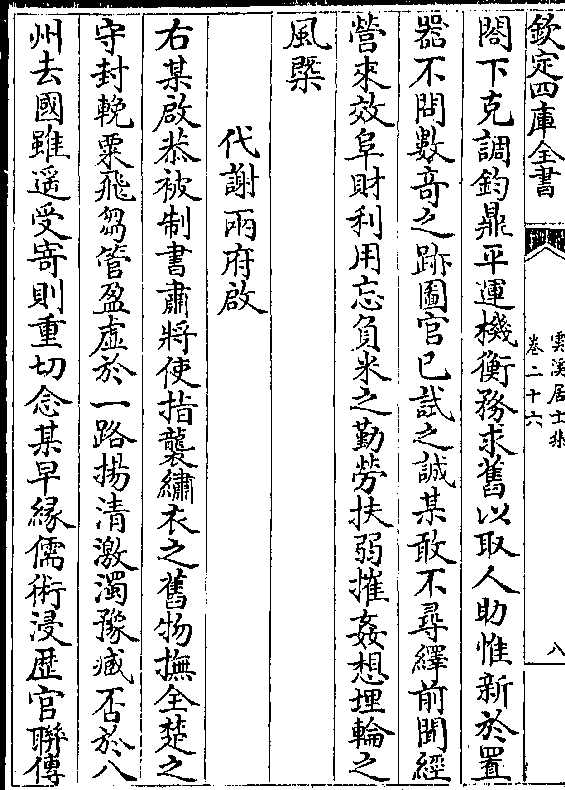 欽定四庫全書
雲溪居士集
卷二十六
八
閤下克調鈞鼎平運機衡務求舊以取人助惟新於置
器不問數竒之跡圖官已試之誠某敢不尋繹前聞經
營來效阜財利用忘負米之勤勞扶弱摧姦想埋輪之
風槩
代謝兩府啟
右某啟恭被制書肅將使指襲繡衣之舊物撫全楚之
守封輓粟飛芻管盈虛於一路揚清激濁豫臧否於八
州去國雖遥受寄則重切念某早縁儒術浸歴官聯傳